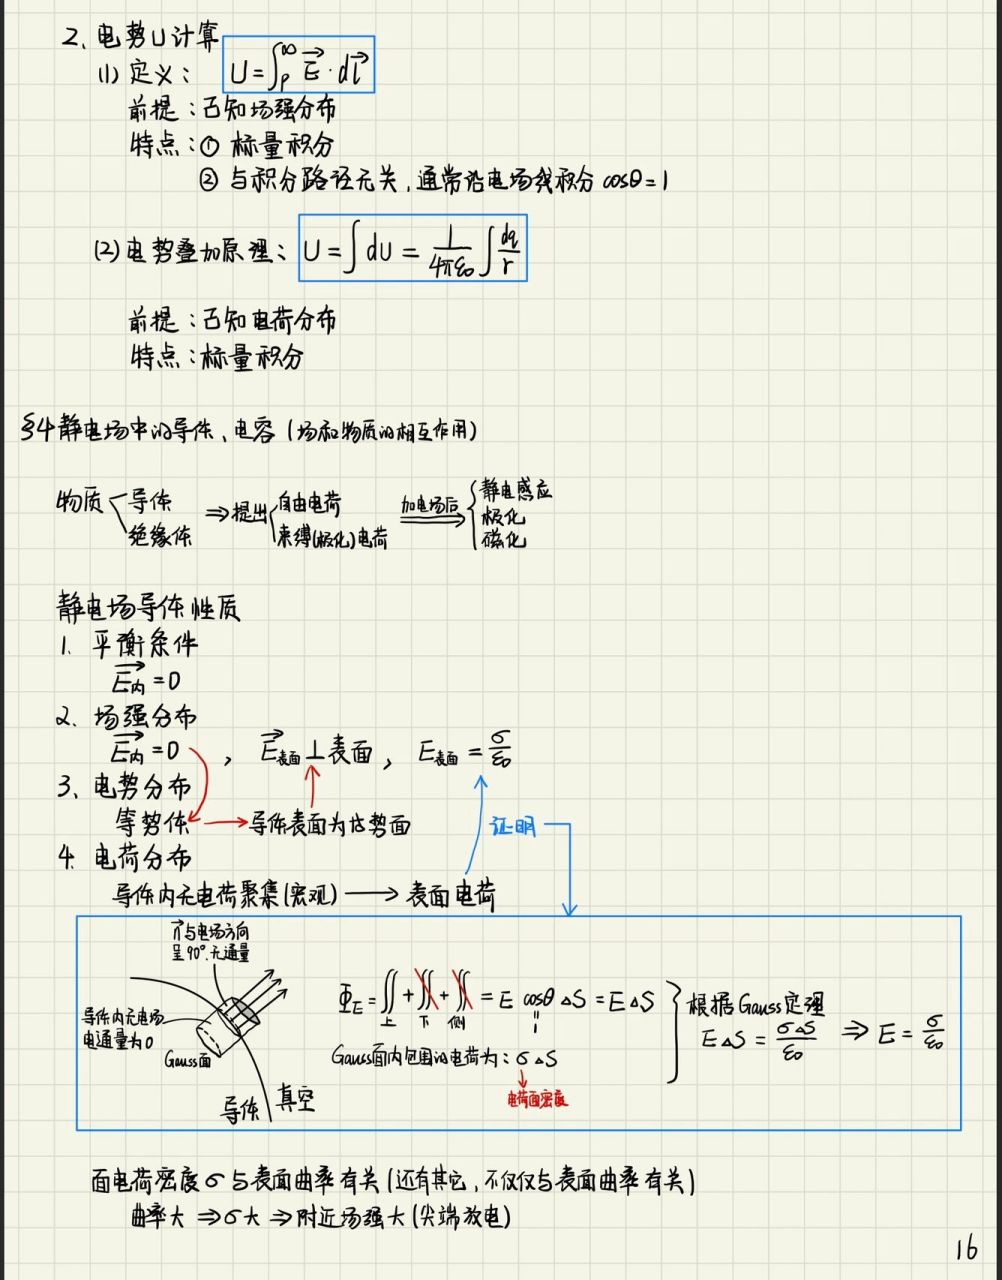 2、电势U计算
(1) 定义： U=∫_P^∞ E⃗·dl⃗
前提：已知场强分布
特点：① 标量积分
② 与积分路径无关，通常沿电场线积分 cosθ=1
(2) 电势叠加原理： U=∫dU=1/(4πε₀)∫dq/r
前提：已知电荷分布
特点：标量积分
§4 静电场中的导体、电容（场和物质的相互作用）
物质 导体 绝缘体 ⇒提出 自由电荷 束缚(极化)电荷 加电场后 静电感应 极化 磁化
静电场导体性质
1、平衡条件
E⃗内=0
2、场强分布
E⃗内=0 ， E⃗表面⊥表面， E表面=σ/ε₀
3、电势分布
等势体 → 导体表面为等势面 证明
4、电荷分布
导体内无电荷聚集(宏观) → 表面电荷
n⃗与电场方向
呈90°.无通量
导体内无电场
电通量为0
Gauss面
导体 真空
Φ_E=∬上+∬下+∬侧=E cosθ ΔS=EΔS
"
1
Gauss面内包围的电荷为：σΔS
电荷面密度
根据Gauss定理
EΔS=σΔS/ε₀ ⇒ E=σ/ε₀
面电荷密度σ与表面曲率有关(还有其它，不仅仅与表面曲率有关)
曲率大 ⇒σ大 ⇒附近场强大(尖端放电)
16